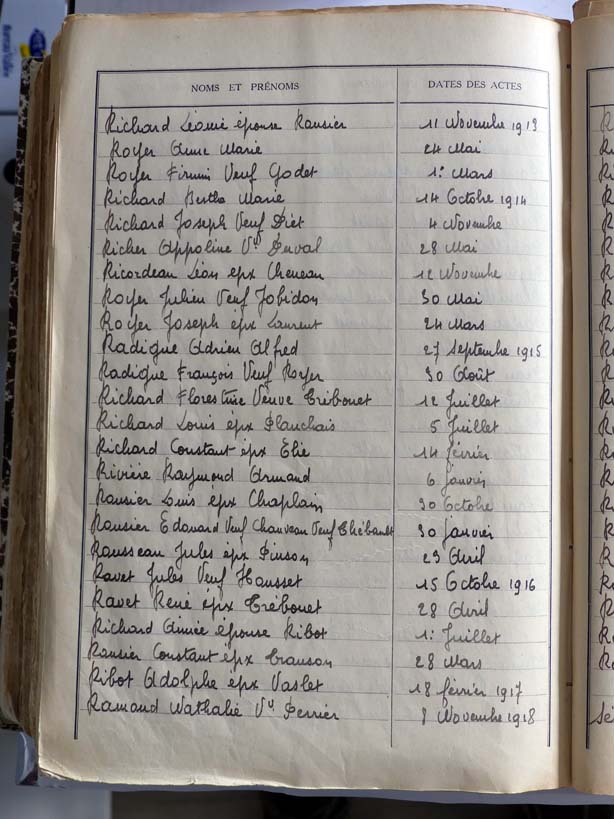 NOMS ET PRÉNOMS DATES DES ACTES
Richard Léonie épouse Rousier 11 Novembre 1913
Royer Anne Marie 24 Mai
Royer Firmin Veuf Godet 1er Mars
Richard Berthe Marie 14 Octobre 1914
Richard Joseph Veuf Diet 4 Novembre
Richer Appoline Vve Duval 28 Mai
Ricordeau Léon épx Cheneau 12 Novembre
Royer Julien Veuf Jobidon 30 Mai
Royer Joseph épx Laurent 24 Mars
Radigue Adrien Alfred 27 Septembre 1915
Radigue François Veuf Royer 30 Août
Richard Florestine Veuve Trébouet 12 Juillet
Richard Louis épx Planchais 5 Juillet
Richard Constant épx Elie 14 février
Rivière Raymond Armand 6 Janvier
Rousier Louis épx Chaplain 30 Octobre
Rousier Edouard Veuf Chauveau Veuf Thébault 30 Janvier
Rousseau Jules épx Pinson 29 Avril
Ravet Jules Veuf Housset 15 Octobre 1916
Ravet René épx Trébouet 28 Avril
Richard Aimée épouse Ribot 1er Juillet
Rousier Constant épx 28 Mars
Ribot Adolphe épx Vaslet 18 février 1917
Ramaud Nathalie Vve Perrier 8 Novembre 1918